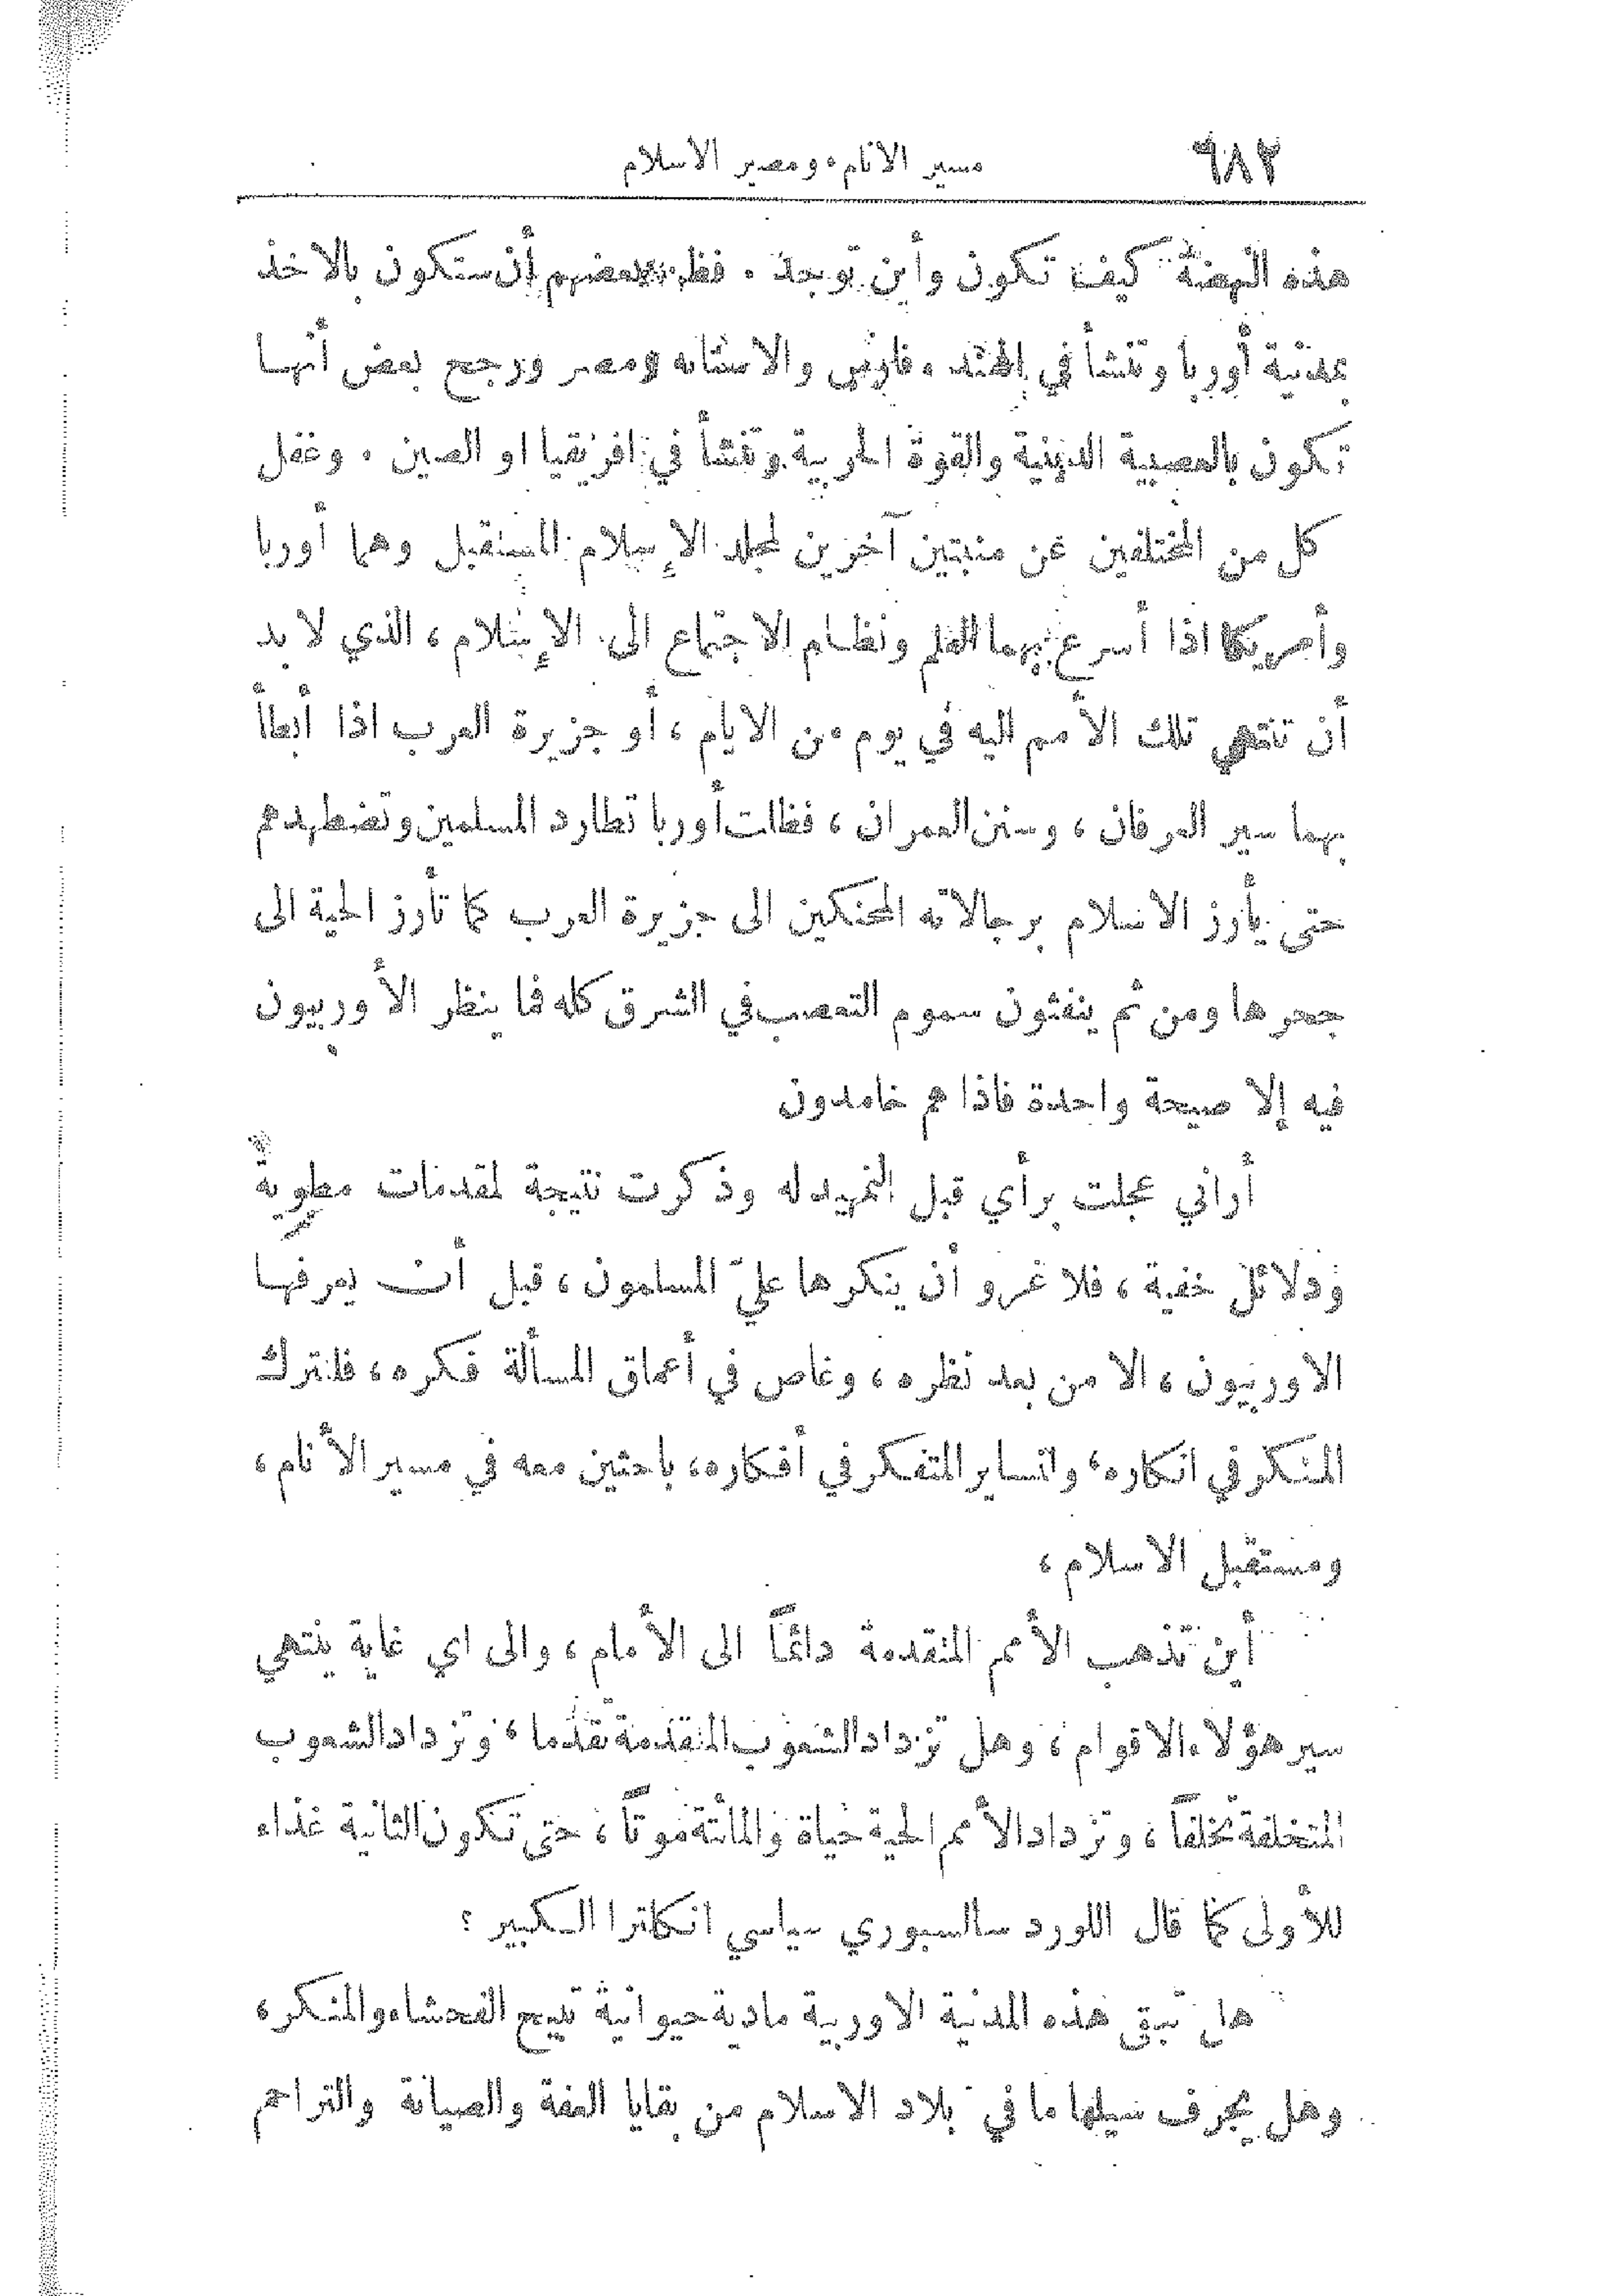 ٦٨٢ مسير الانام، ومصير الاسلام
هذه النهضة كيف تكون وأين توجد . فظن بعضهم أن ستكون بالاخذ
بمدنية أوربا وتنشأ في الهند وفارس والاستانه ومصر ورجح بعض أنها
تكون بالعصبية الدينية والقوة الحربية وتنشأ في افريقيا او الصين . وغفل
كل من المختلفين عن منبتين آخرين لمجد الإسلام المستقبل وهما أوربا
وأمريكا اذا أسرع بهما العلم ونظام الاجتماع الى الإسلام ، الذي لا بد
أن تنتهي تلك الأمم اليه في يوم من الايام ، أو جزيرة العرب اذا أبطأ
بهما سير العرفان ، وسنن العمران ، فظلت أوربا تطارد المسلمين وتضطهدهم
حتى يأرز الاسلام برجالاته المحنكين الى جزيرة العرب كما تأرز الحية الى
جحرها ومن ثم ينفثون سموم التعصب في الشرق كله فما ينظر الأوربيون
فيه إلا صيحة واحدة فاذا هم خامدون
أراني عجلت برأي قبل التمهيد له وذكرت نتيجة لمقدمات مطوية
ودلائل خفية ، فلا غرو أن ينكرها عليّ المسلمون ، قبل أن يعرفها
الاوربيون ، الا من بعد نظره ، وغاص في أعماق المسألة فكره ، فلنترك
المنكر في انكاره ، ولنساير المتفكر في أفكاره ، باحثين معه في مسير الأنام ،
ومستقبل الاسلام ،
أين تذهب الأمم المتقدمة دائمًا الى الأمام ، والى اي غاية ينتهي
سير هؤلاء الاقوام ، وهل تزداد الشعوب المتقدمة تقدما ، وتزداد الشعوب
المتخلفة تخلفًا ، وتزداد الأمم الحية حياة والمائتة موتًا ، حتى تكون الثانية غذاء
للأولى كما قال اللورد سالسبوري سياسي انكلترا الكبير ؟
هل تبقى هذه المدنية الاوربية مادية حيوانية تبيح الفحشاء والمنكر ،
وهل يجرف سيلها ما في بلاد الاسلام من بقايا العفة والصيانة والتراحم